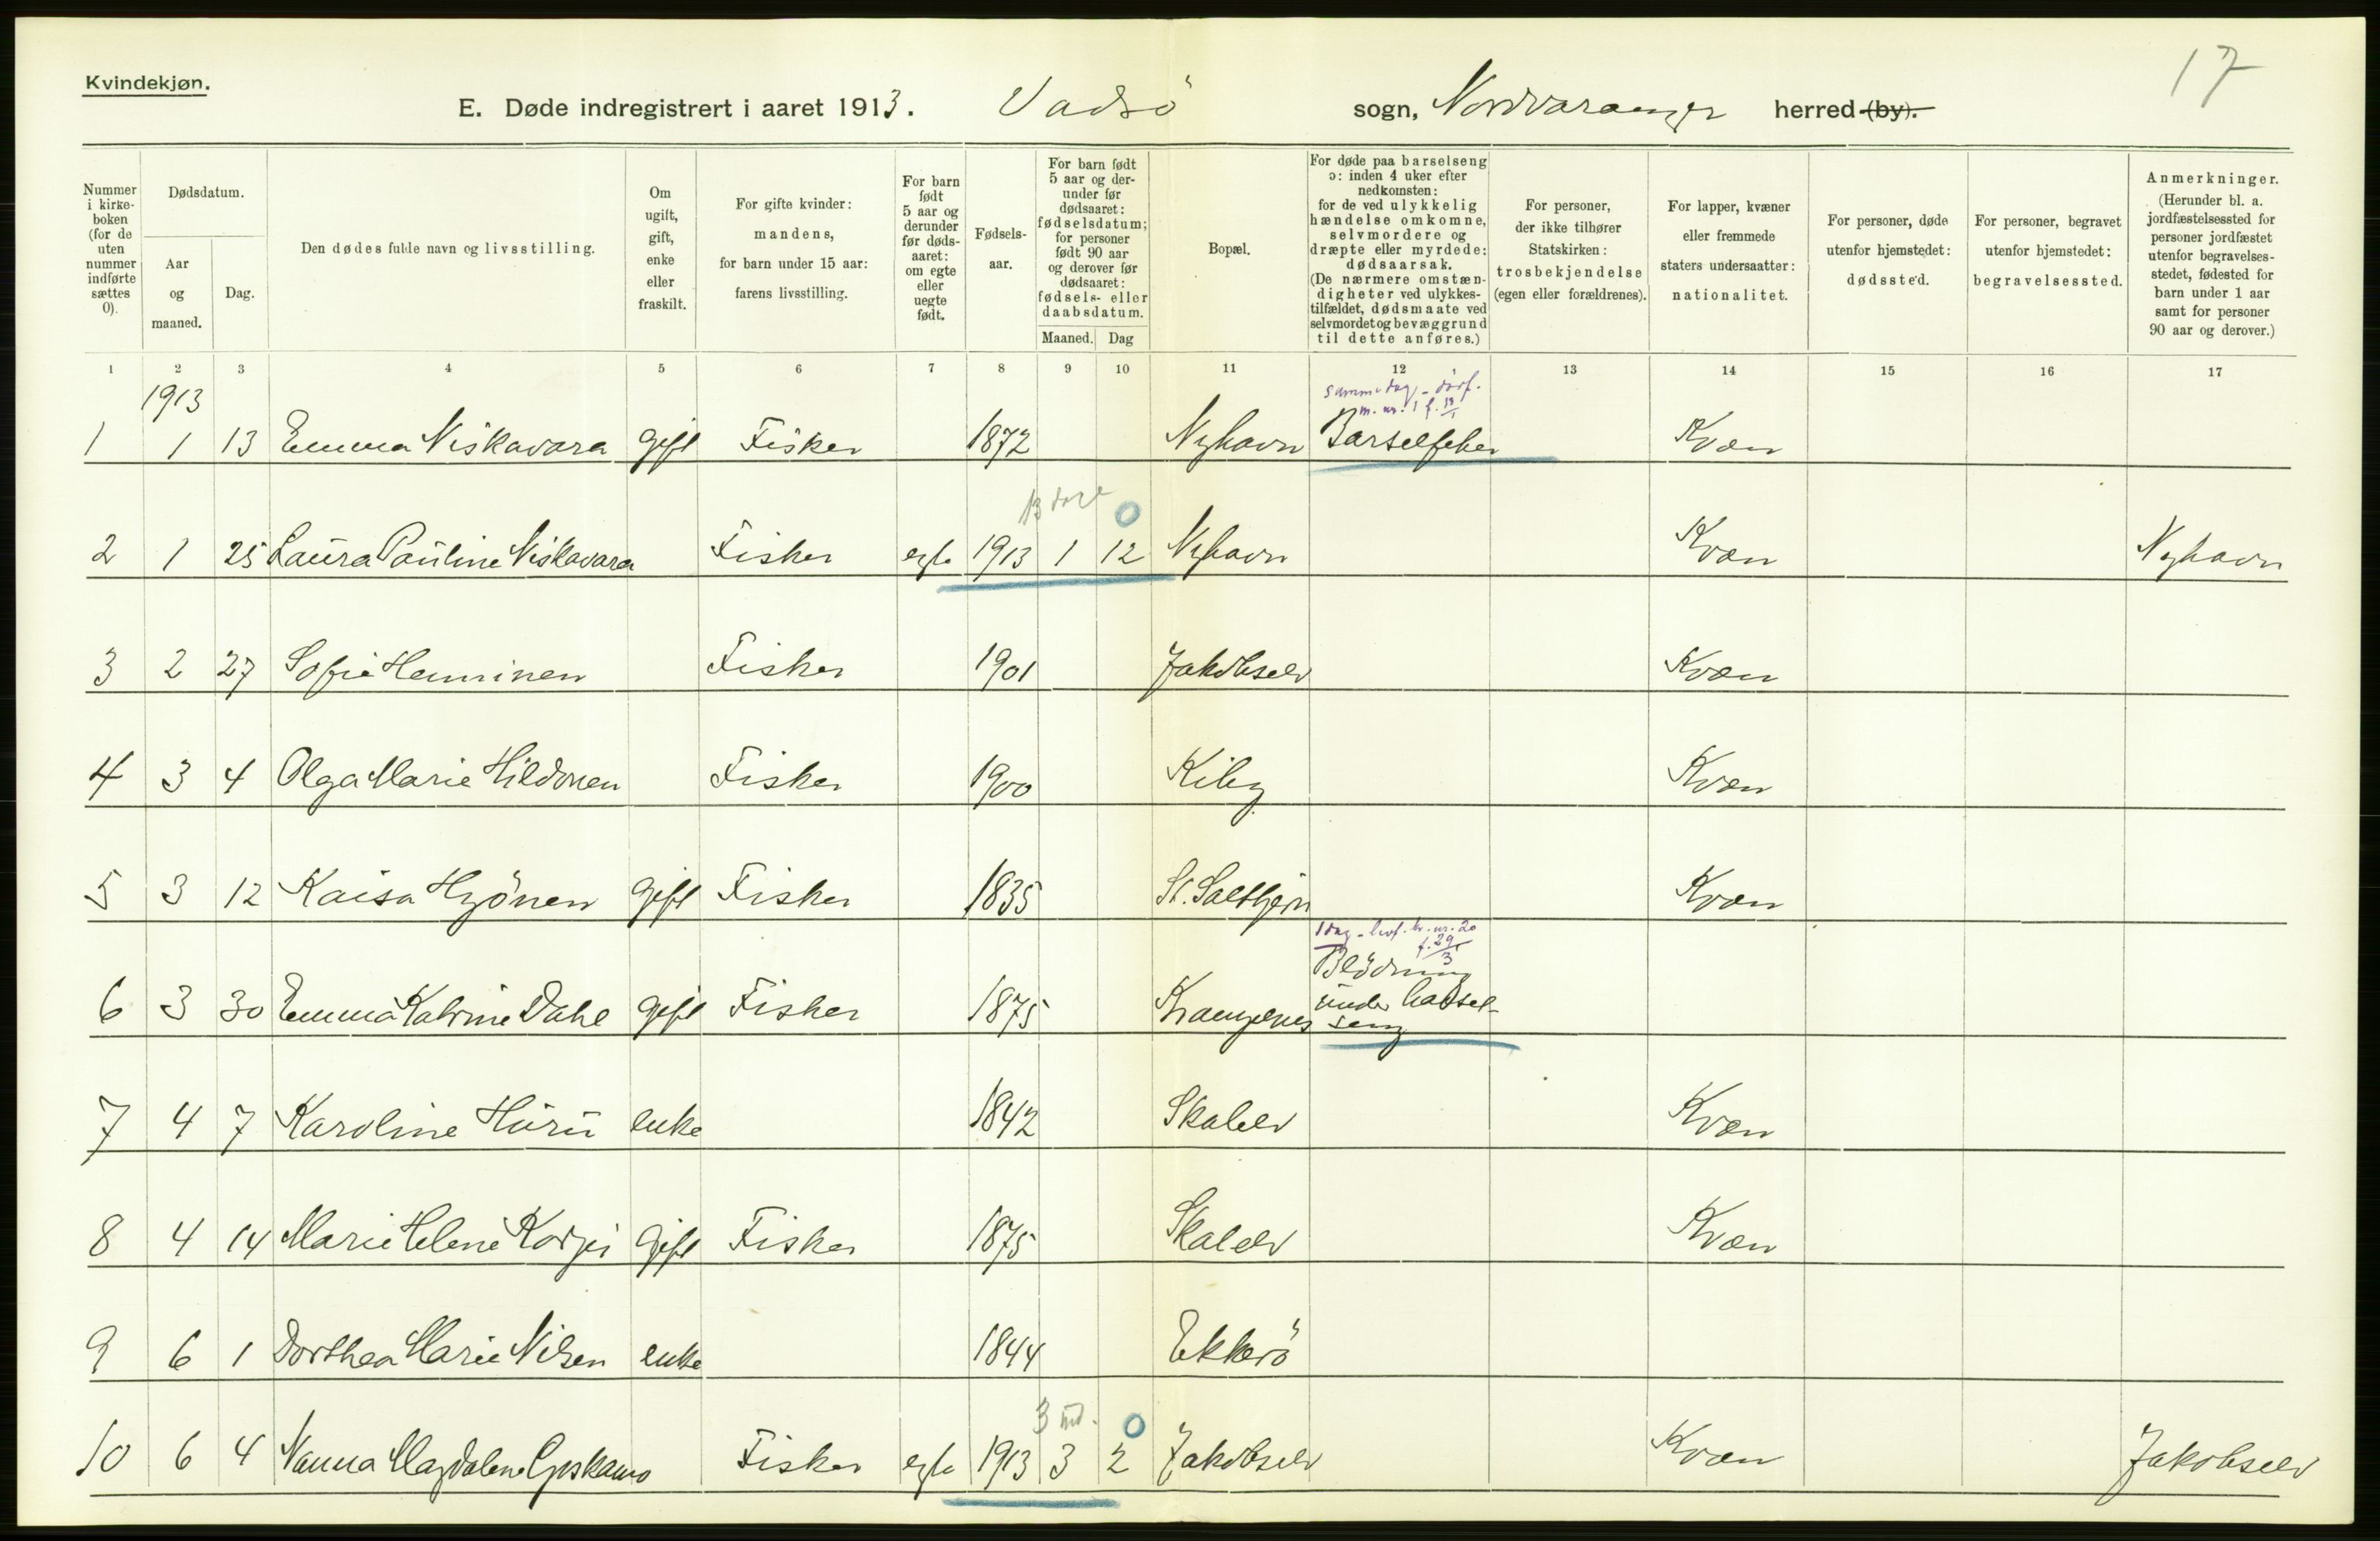 17
Kvindekjøn.
E. Døde indregistrert i aaret 1913. Vadsö sogn, Nordvaranger herred (by).
Nummer i kirke-boken (for de uten nummer indførte sættes 0).
Dødsdatum.
Aar og maaned.
Dag.
Den dødes fulde navn og livsstilling.
Om ugift, gift, enke eller fraskilt.
For gifte kvinder: mandens, for barn under 15 aar: farens livsstilling.
For barn født 5 aar og derunder før døds-aaret: om egte eller uegte født.
Fødsels-aar.
For barn født 5 aar og der-under før dødsaaret: fødselsdatum; for personer født 90 aar og derover før dødsaaret: fødsels- eller daabsdatum.
Maaned. Dag
Bopæl.
For døde paa barselseng ɔ: inden 4 uker efter nedkomsten: for de ved ulykkelig hændelse omkomne, selvmordere og dræpte eller myrdede: dødsaarsak. (De nærmere omstæn-digheter ved ulykkes-tilfældet, dødsmaate ved selvmordet og bevæggrund til dette anføres.)
For personer, der ikke tilhører Statskirken: trosbekjendelse (egen eller forældrenes).
For lapper, kvæner eller fremmede staters undersaatter: nationalitet.
For personer, døde utenfor hjemstedet: dødssted.
For personer, begravet utenfor hjemstedet: begravelsessted.
Anmerkninger. (Herunder bl. a. jordfæstelsessted for personer jordfæstet utenfor begravelses-stedet, fødested for barn under 1 aar samt for personer 90 aar og derover.)
1 2 3 4 5 6 7 8 9 10 11 12 13 14 15 16 17
1913
samme dag - dödf.
m. nr. 1 f. 13/1
1 1 13 Emma Niskavara gift Fisker 1872 Nyhavn Barselfeber Kvæn
13 dage 0
2 1 25 Laura Pauline Niskavara Fisker egte 1913 1 12 Nyhavn Kvæn Nyhavn
3 2 27 Sofie Henninen Fisker 1901 Jakobselv Kvæn
4 3 4 Olga Marie Hildonen Fisker 1900 Kiby Kvæn
5 3 12 Kaisa Hyönen gift Fisker 1835 St. Saltjern Kvæn
1 dag - levf. kv. nr. 20
f. 29/3
6 3 30 Emma Katrine Dahl gift Fisker 1875 Krampenes Blödning under barsel-seng
7 4 7 Karoline Huru enke 1842 Skalelv Kvæn
8 4 14 Marie Helene Korpi Gift Fisker 1875 Skalelv Kvæn
9 6 1 Dorthea Marie Nilsen enke 1844 Ekkerö
3 md. 0
10 6 4 Nanna Magdalene Fisker egte 1913 3 2 Jakobselv Kvæn Jakobselv